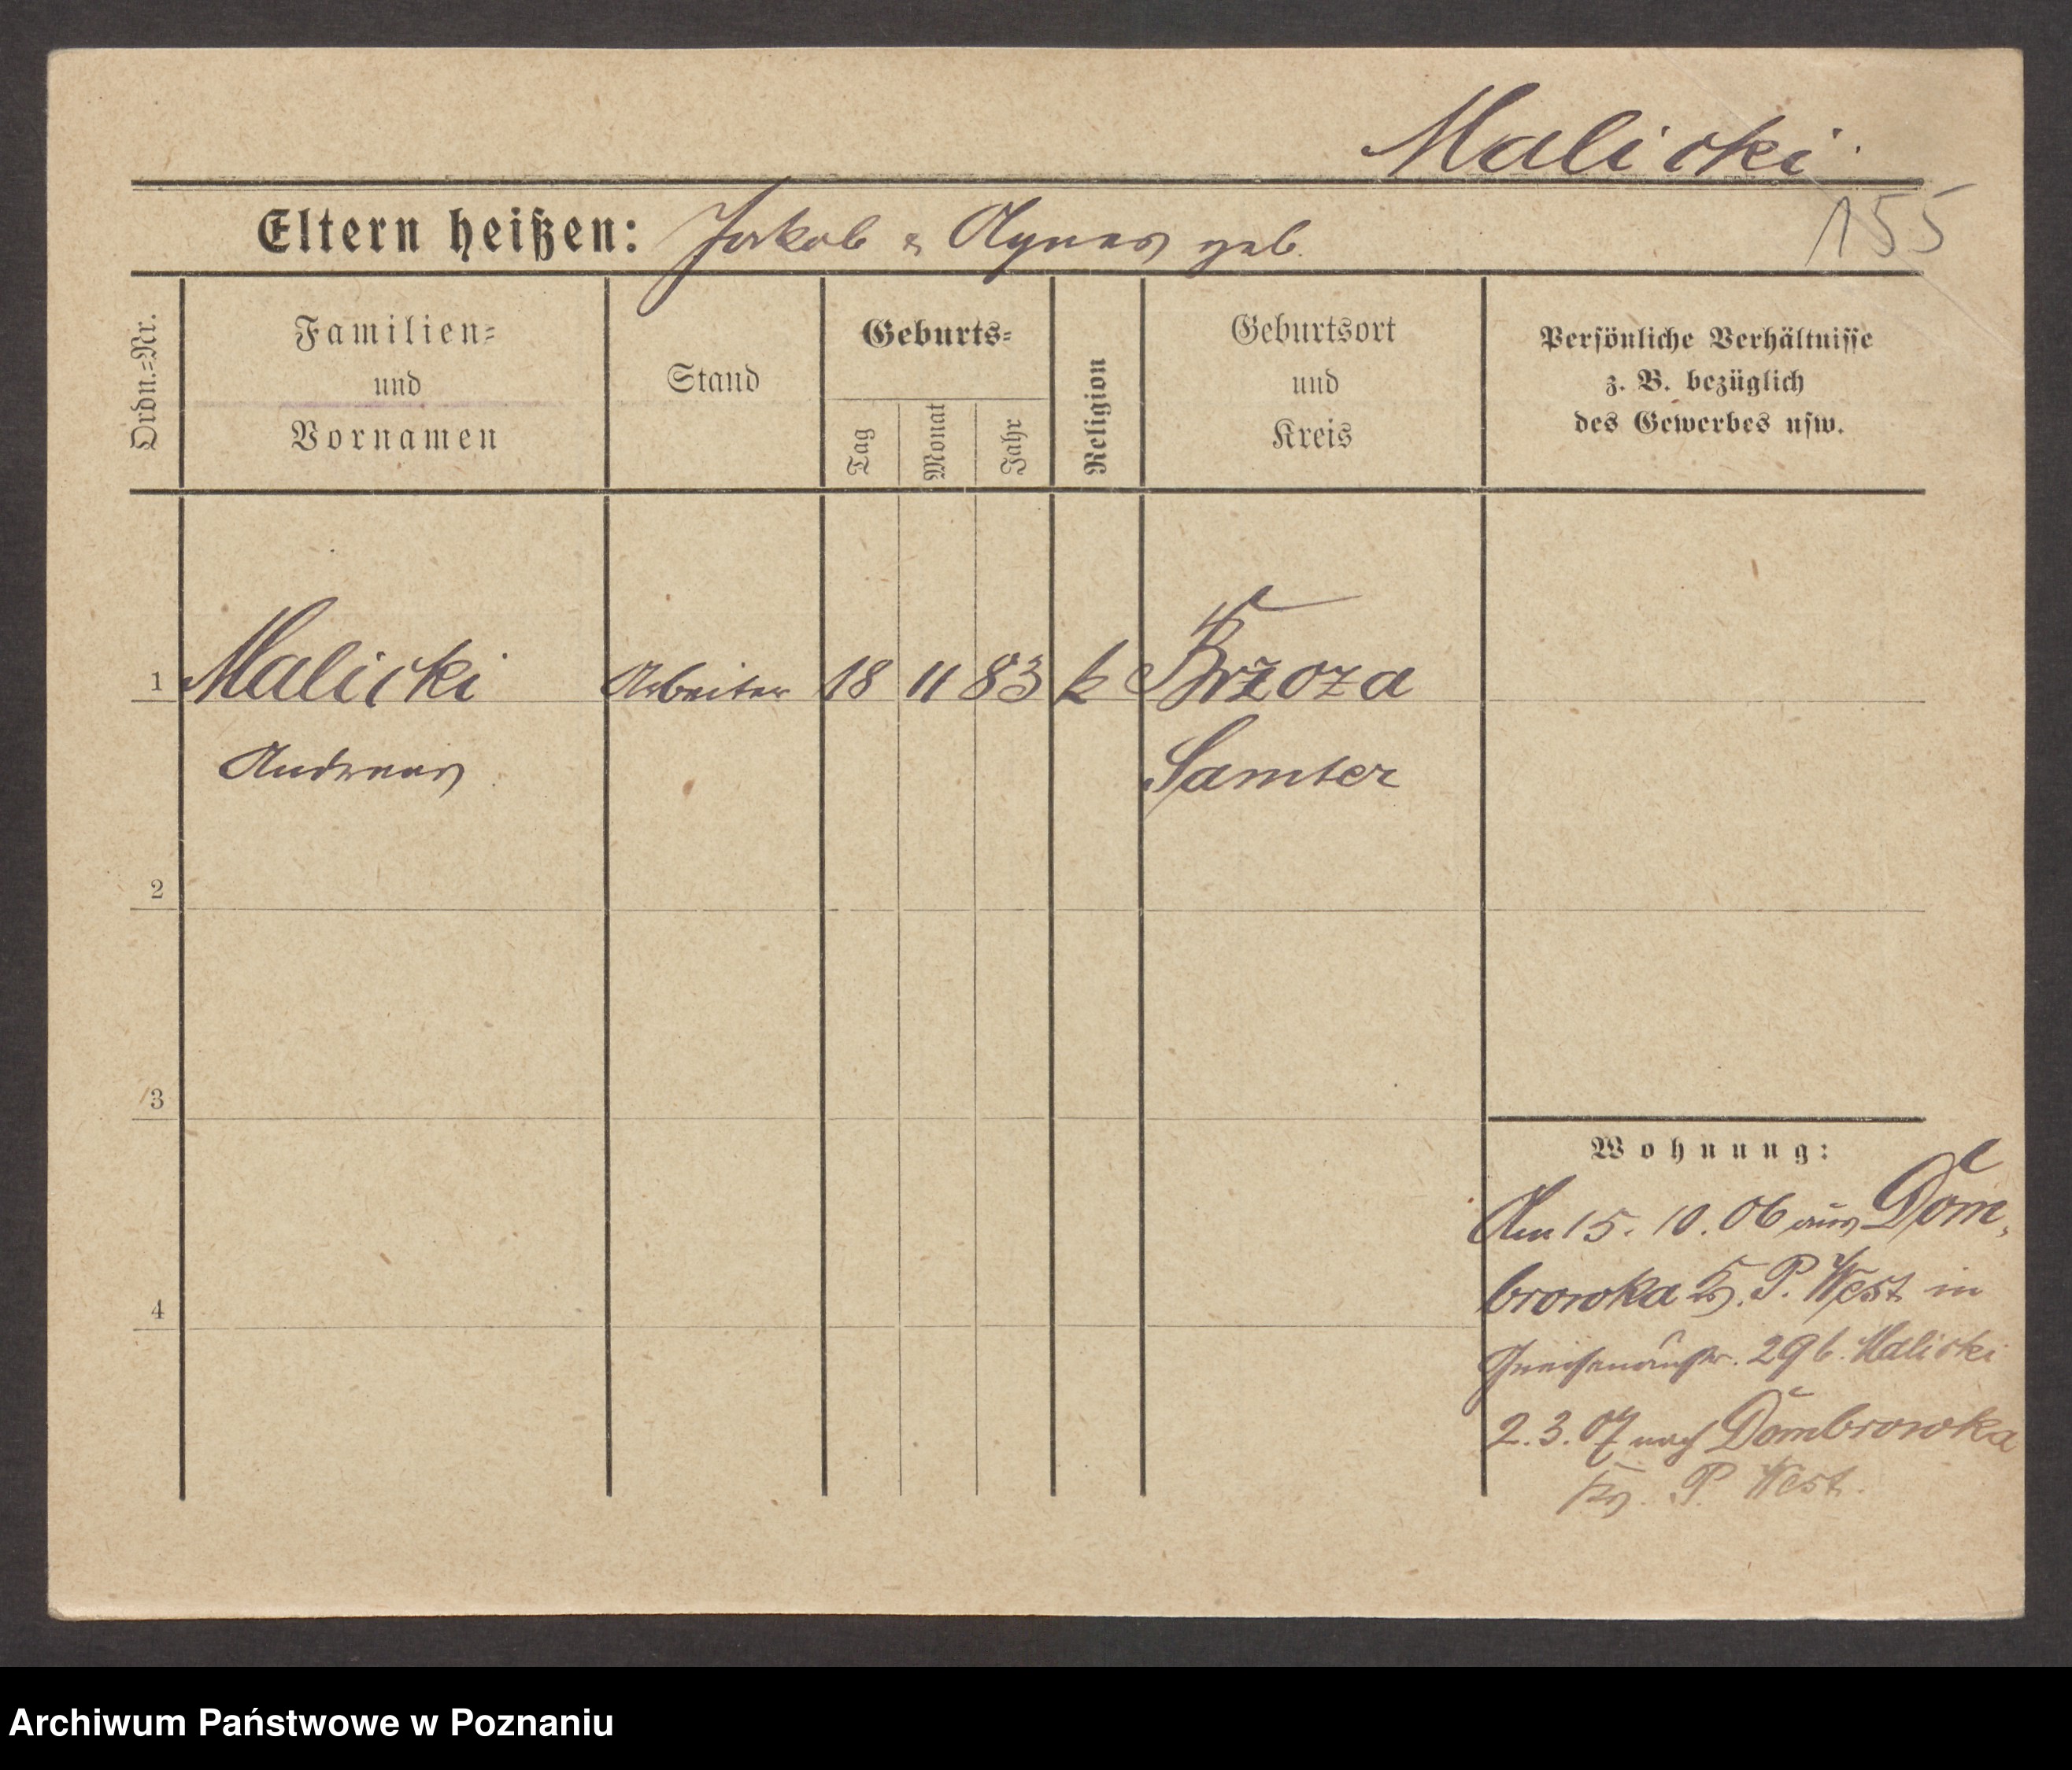 Malicki
155
Eltern heißen: Jakob & Agnes geb.
Ordn.=Nr.
Familien=
und
Vornamen
Stand
Geburts=
Tag
Monat
Jahr
Religion
Geburtsort
und
Kreis
Persönliche Verhältnisse
z. B. bezüglich
des Gewerbes usw.
1 Malicki Arbeiter 18 11 83 k Brzoza
Andreas Samter
2
3
4
Wohnung:
Am 15. 10. 06 aus Dom-
browka Krs. P. West in
29 b. Malicki
2. 3. 07 nach Dombrowka
Krs. P. West.
Archiwum Państwowe w Poznaniu